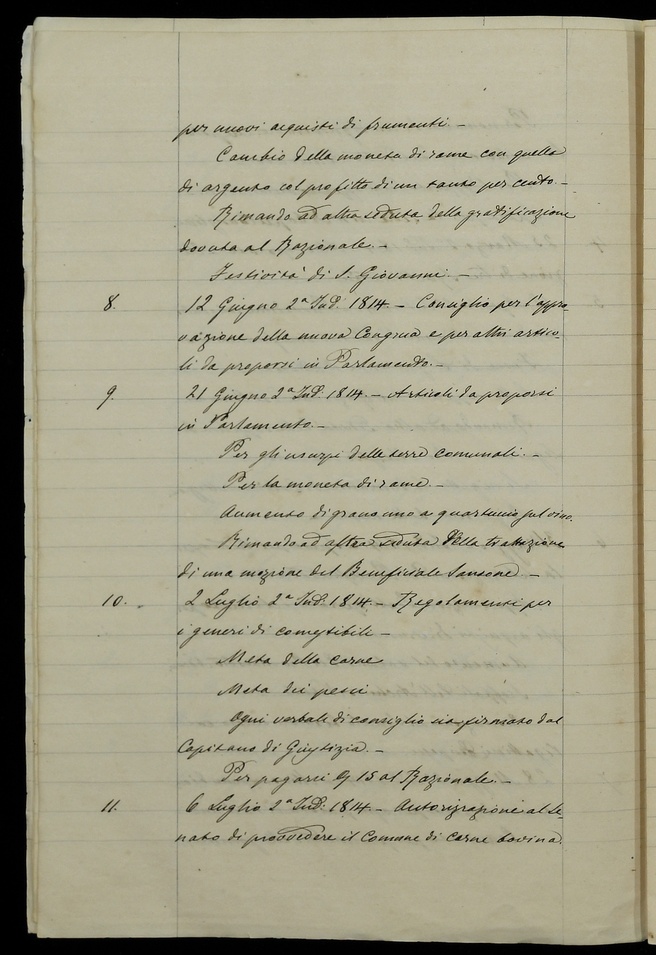 per nuovi acquisti di frumenti. -
Cambio della moneta di rame con quella
di argento col profitto di un tanto per cento. -
Rimando ad altra seduta della gratificazione
dovuta al Razionale. -
Festività di S. Giovanni. -
8. 12 Giugno 2ª Ind. 1814. - Consiglio per l'appro-
vazione della nuova Congrua e per altri artico-
li da proporsi in Parlamento. -
9. 21 Giugno 2ª Ind. 1814. - Articoli da proporsi
in Parlamento. -
Per gli usurpi delle terre comunali. -
Per la moneta di rame. -
Aumento di grano uno a quartuccio sul vino.
Rimando ad altra seduta della trattazione
di una mozione del Beneficiale Sansone. -
10. 2 Luglio 2ª Ind. 1814. - Regolamenti per
i generi di comestibili -
Meta della carne
Meta dei pesci
Ogni verbale di consiglio sia firmato dal
Capitano di Giustizia. -
Per pagarsi 15 al Razionale. -
11. 6 Luglio 2ª Ind. 1814. - Autorizzazione al Se-
nato di provvedere il Comune di carne bovina.